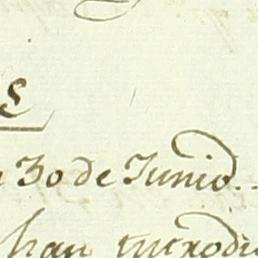 s
30 de Junio..
han introdu